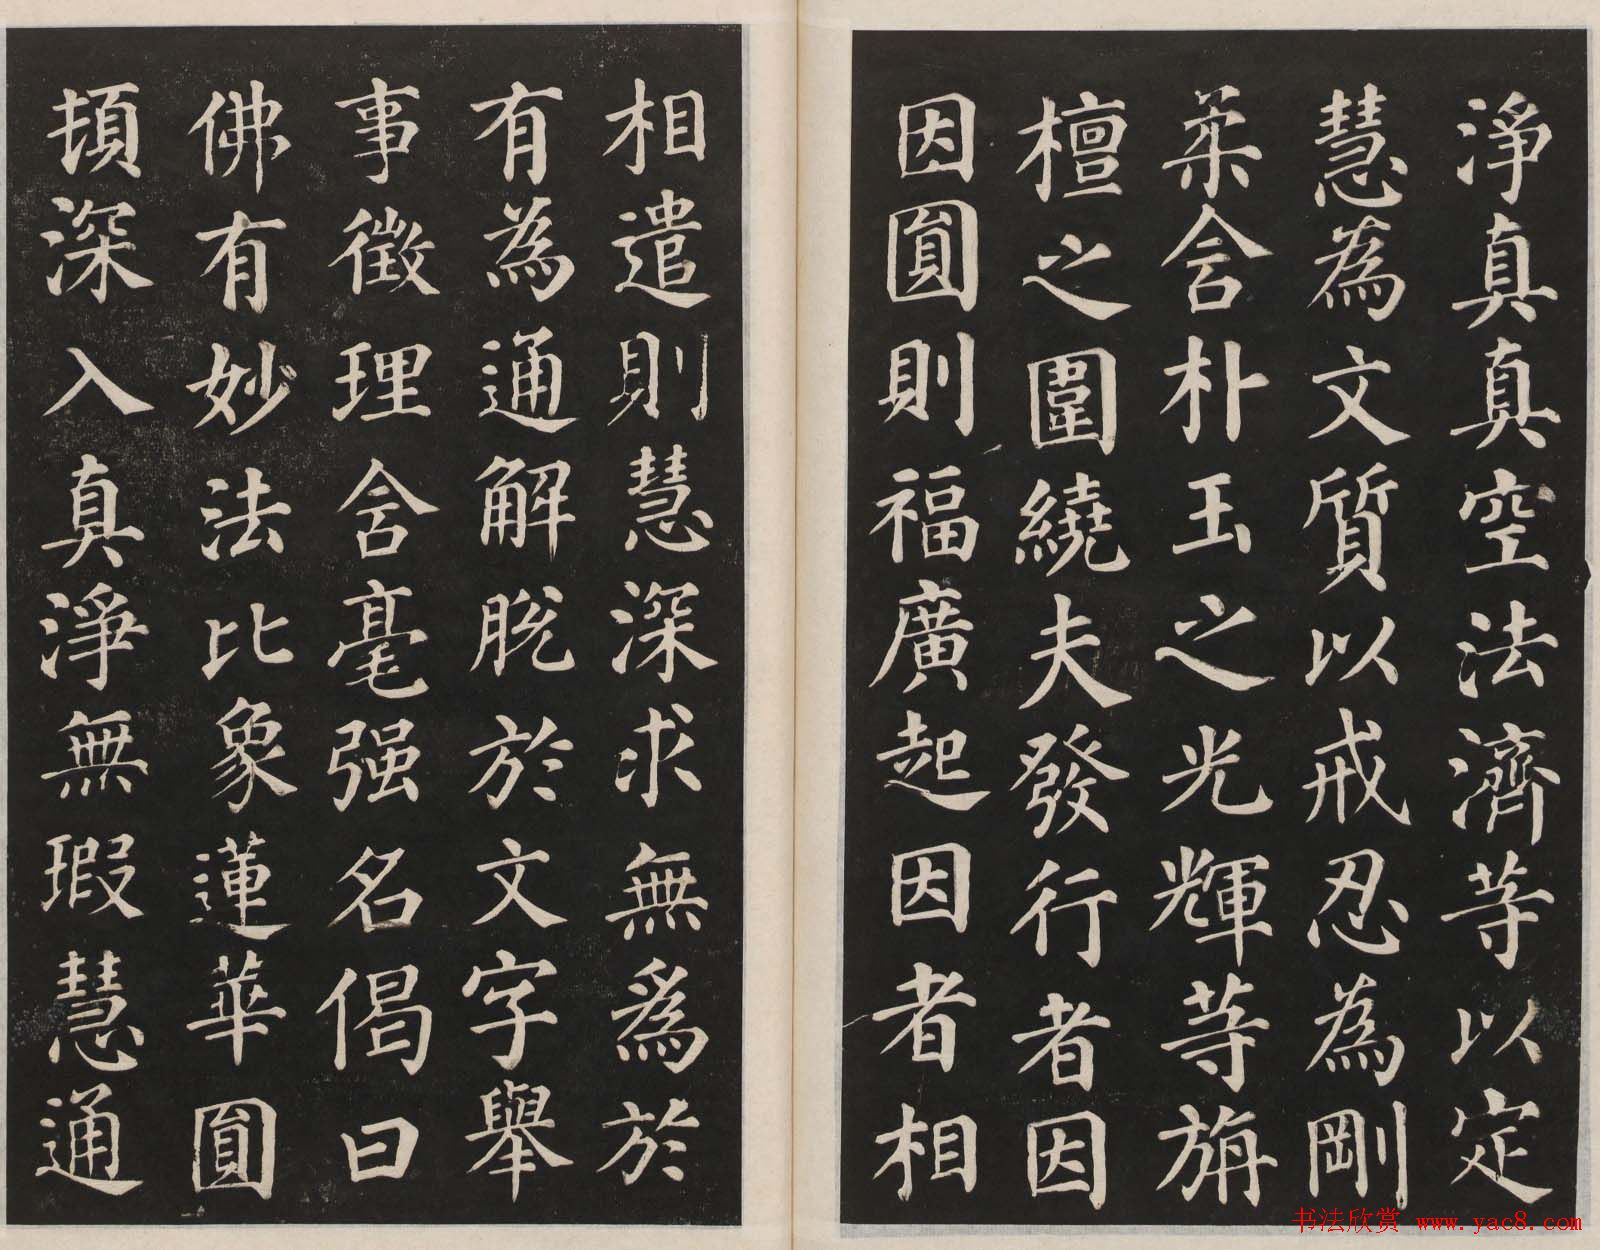 淨真真空法濟等以定
慧為文質以戒忍為剛
柔含朴玉之光輝等旃
檀之圍繞夫發行者因
因圓則福廣起因者相
相遣則慧深求無爲於
有為通解脫於文字舉
事徵理含毫强名偈曰
佛有妙法比象蓮華圓
頓深入真淨無瑕慧通
书法欣赏 www.yac8.com